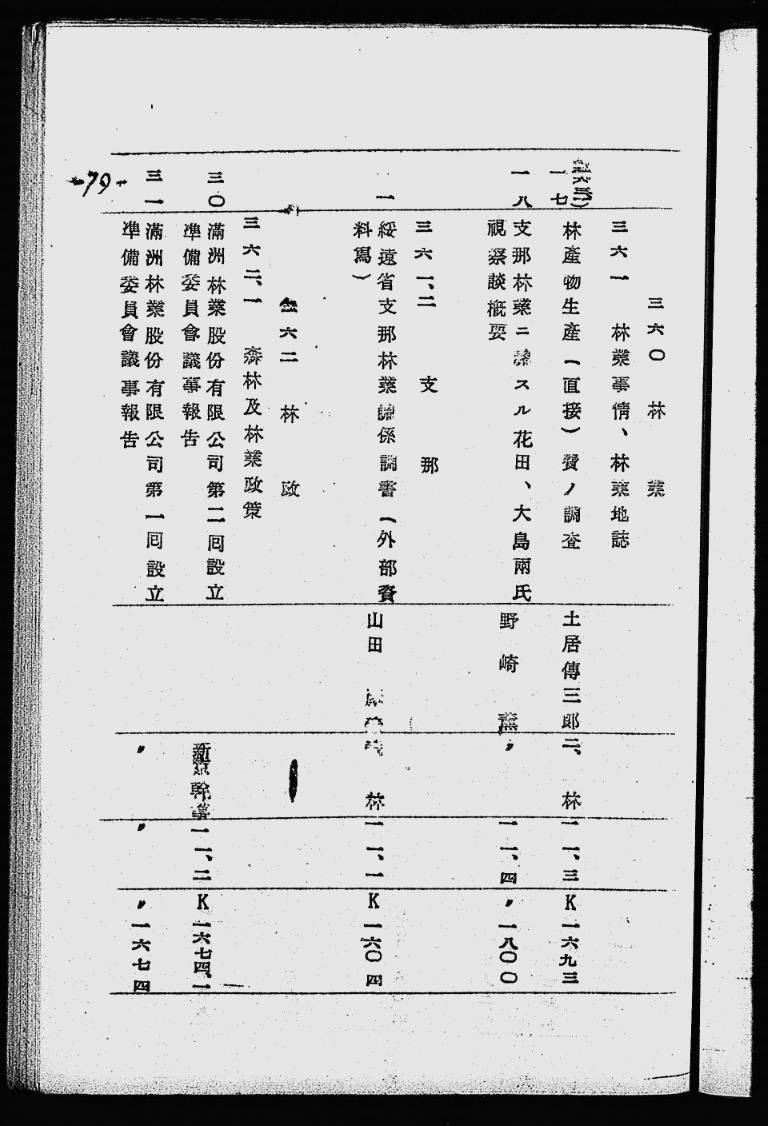 三六〇 林業
三六一 林業事情、林業地誌
一七 林產物生產(直接)費ノ調査 土居傳三郎 二、林 一一、三 K一六九三
一八 支那林業ニ關スル花田、大島兩氏 野崎薰 〃 一一、四 〃一八〇〇
視察談槪要
三六一、二 支那
一 綏遠省支那林業關係調書(外部資 山田 林 一一、一 K一六〇四
料寫)
三六二 林政
三六二、一 森林及林業政策
三〇 滿洲林業股份有限公司第二囘設立 新京幹事 一一、二 K一六七四、一
準備委員會議事報告
三一 滿洲林業股份有限公司第一囘設立 〃 〃 〃一六七四
準備委員會議事報告
-79-